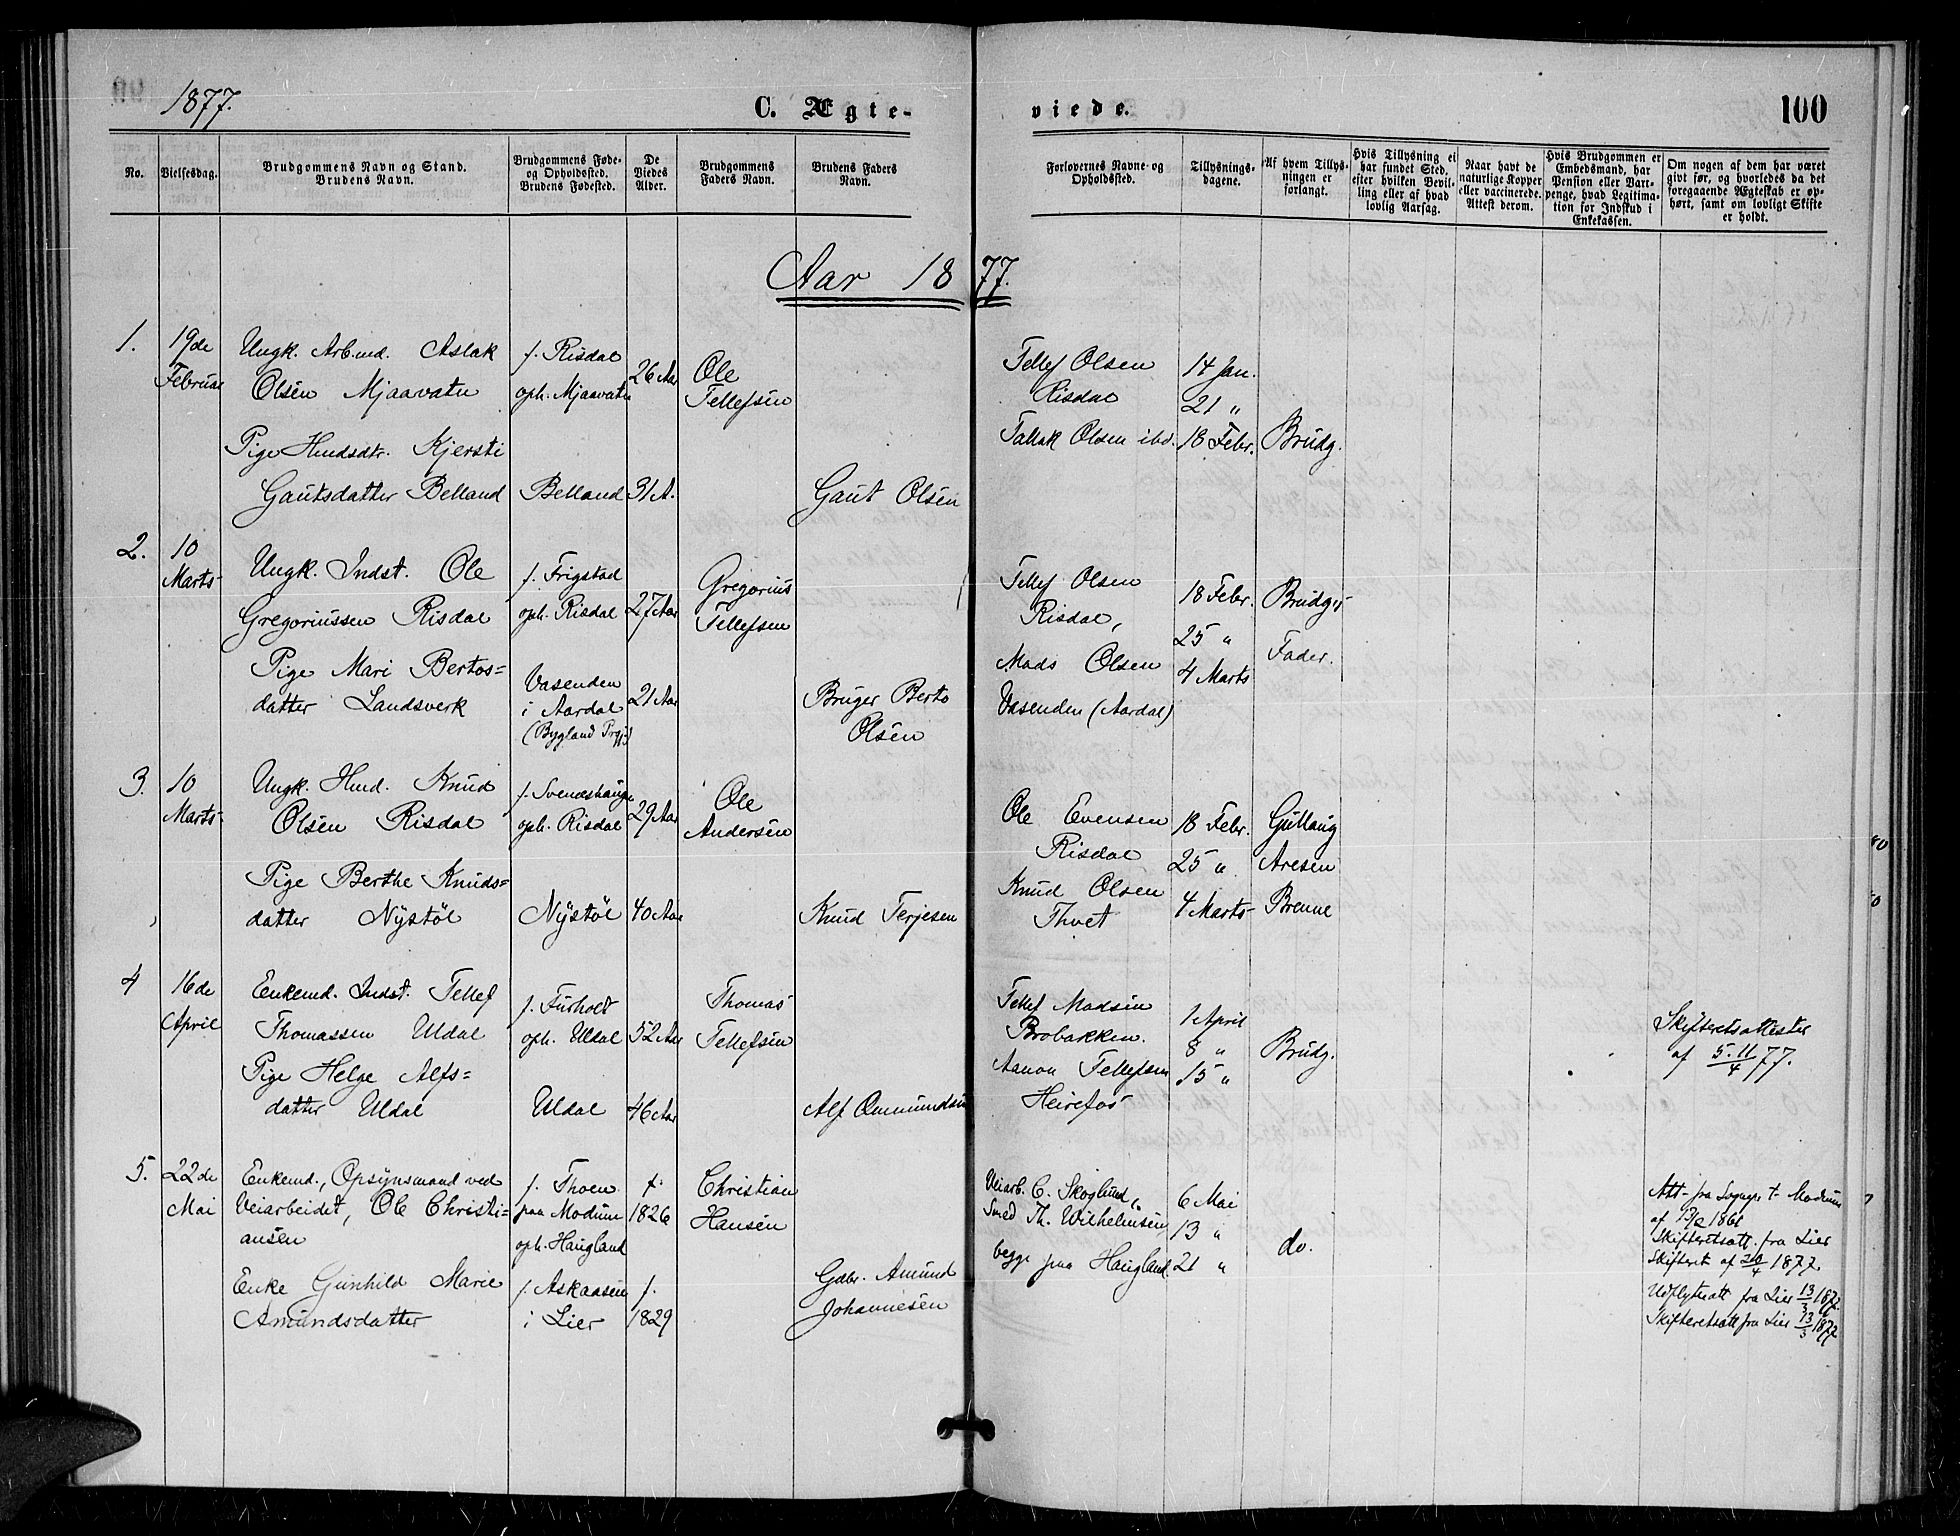 1877.
C. Ægte-
viede.
100
No.
Vielsesdag.
Brudgommens Navn og Stand.
Brudens Navn.
Brudgommens Føde-
og Opholdssted.
Brudens Fødested.
De
Viedes
Alder.
Brudgommens
Faders Navn.
Brudens Faders
Navn.
Forlovernes Navne og
Opholdssted.
Tillysnings-
dagene.
Af hvem Tillys-
ningen er
forlangt.
Hvis Tillysning ei
har fundet Sted,
efter hvilken Bevil-
ling eller af hvad
lovlig Aarsag.
Naar havt de
naturlige Kopper
eller vaccinerede.
Attest derom.
Hvis Brudgommen er
Embedsmand, har
Pension eller Vart-
penge, hvad Legitima-
tion for Indskud i
Enkekassen.
Om nogen af dem har været
givt før, og hvorledes da det
foregaaende Ægteskab er op-
hørt, samt om lovligt Skifte
er holdt.
Aar 1877.
1.
19de
Februar
Ungk. Arb.md. Aslak
Olsen Mjaavatn
f. Risdal
oph. Mjaavatn
26 Aar
Ole
Tellefsen
Pige Huusdtr. Kjersti
Gautsdatter Belland
Belland
31 A.
Gaut Olsen
Tellef Olsen
Risdal
Tallak Olsen ibd.
14 Jan.
21 "
18 Febr.
Brudg.
2.
10
Marts
Ungk. Indst. Ole
Gregoriussen Risdal
f. Frigstad
oph. Risdal
27 Aar
Gregorius
Tellefsen
Pige Mari Bertos=
datter Landsverk
Vasenden
i Aardal
(Bygland Prgj.)
21 Aar
Bruger Berto
Olsen
Tellef Olsen
Risdal,
Mads Olsen
Vasenden (Aardal)
18 Febr.
25 "
4 Marts
Brudg's
Fader.
3.
10
Marts
Ungk. Huud. Knud
Olsen Risdal
f. Svenshauge
oph. Risdal
29 Aar
Ole
Andersen
Pige Berthe Knuds=
datter Nystøl
Nystøl
40 Aar
Knud Terjesen
Ole Evensen
Risdal
Knud Olsen
Thvet
18 Febr.
25 "
4 Marts
Gullaug
Aresen
Brenne
4
16de
April
Enkemd. Indst. Tellef
Thomassen Uldal
f. Furholt
oph. Uldal
52 Aar
Thomas
Tellefsen
Pige Helge Alfs=
datter Uldal
Uldal
46 Aar
Alf Ommundsen
Tellef Madsen
Brobakken.
Aanon Tellefsen
Heirefos
1 April
8 "
15 "
Brudg.
Skifteretsattester
af 5.11/4 77.
5.
22de
Mai
Enkemd., Opsynsmand ved
Veiarbeidet, Ole Christi=
ansen
f. Thoen
paa Modum
oph. Haugland
f.
1826
Christian
Hansen
Enke Gunhild Marie
Amundsdatter
f. Askaasen
i Lier
f.
1829
Gdbr. Amund
Johannesen
Veiarb. C. Skoglund,
Smed Th. Wilhelmsen,
begge paa Haugland.
6 Mai
13 "
21 "
do.
Att. fra Sognepr. t. Modum
af 1861
Skifteretsatt. fra Lier
Skifteret af 20/4 1877.
Udflytnatt fra Lier 13/3 1877.
Skifteretsatt fra Lier 13/3 1877